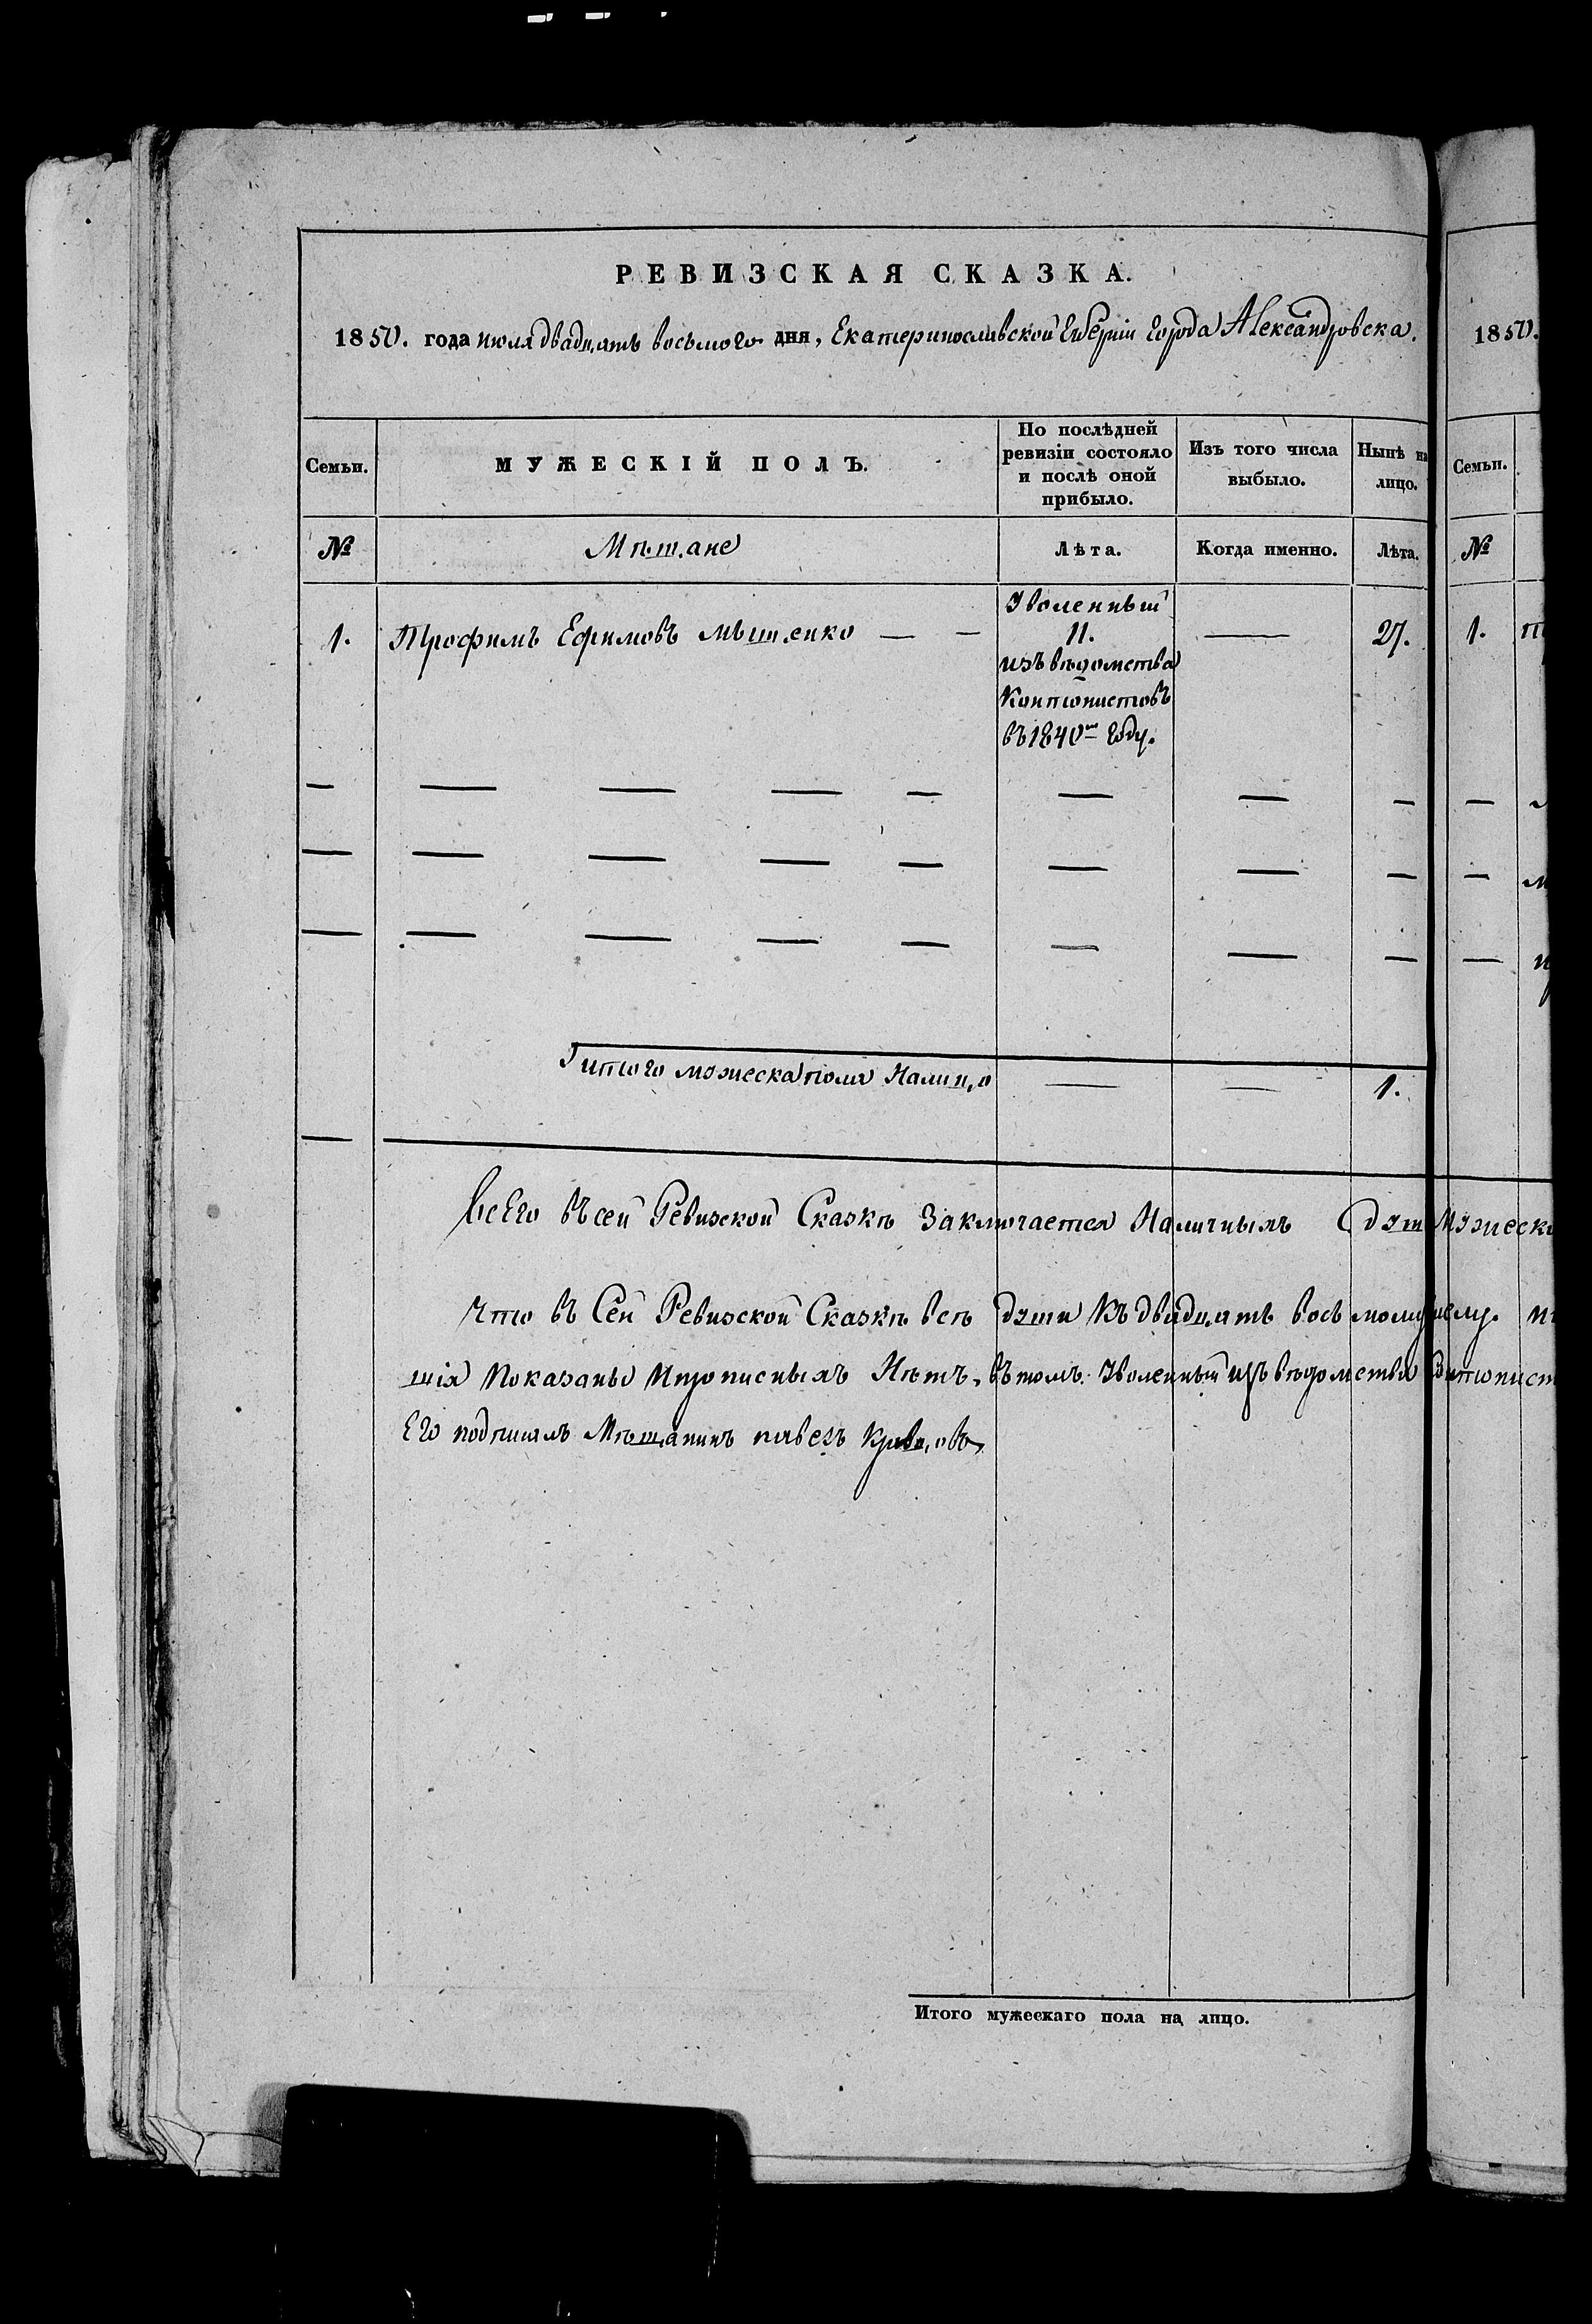 РЕВИЗСКАЯ СКАЗКА.
1850. года июля двадцать восьмого дня, Екатеринославской Губерніи города Александровска.
1850.
Семьи.
МУЖЕСКІЙ ПОЛЪ.
По послѣдней ревизіи состояло и послѣ оной прибыло.
Изъ того числа выбыло.
Нынѣ на лицо.
Семьи.
№
Мѣщане
Лѣта.
Когда именно.
Лѣта.
№
Уволенный
1. Трофимъ Ефимовъ Мищенко — — 11. — 27. 1.
изъ вѣдомства
Контонистовъ
въ 1840м году.
Итого мужеска пола Налицо — — 1.
Всего въ сей Ревизской Сказкѣ Заключается Наличныхъ душ Мужеск
Что въ Сей Ревизской Сказкѣ всѣ души Къ двадцать восьмому
шія Показаны Ипрописныхъ Нѣтъ, въ томъ. Уволенный изъ вѣдомства
Его подписалъ Мѣщанинъ Кривцовъ
Итого мужескаго пола на лицо.